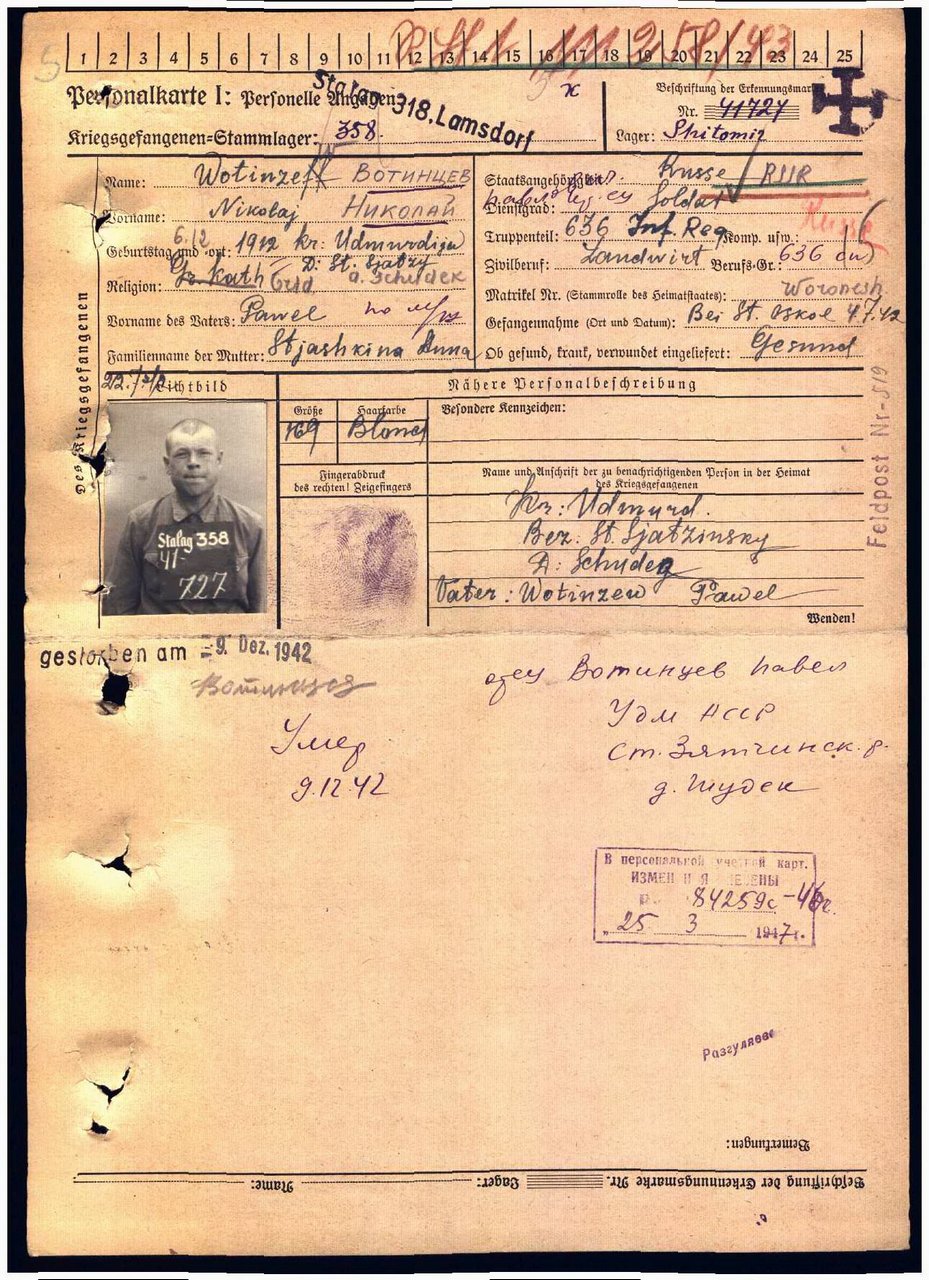 1 2 3 4 5 6 7 8 9 10 11 12 13 14 15 16 17 18 19 20 21 22 23 24 25
Personalkarte I: Personelle Angaben
Stalag 318, Lamsdorf
Beschriftung der Erkennungsmarke
Nr. 41727
Kriegsgefangenen-Stammlager: 358
Lager: Shitomir
Des Kriegsgefangenen
Name: Wotinzeff ВОТИНЦЕВ
Vorname: Nikolaj НИКОЛАЙ
Geburtstag und -ort: 6.12 1912 kr: Udmurdija
D: St. Sjatzy
Religion: Gr. Kath
Vorname des Vaters: Pawel
Familienname der Mutter: Stjashkina Anna
Staatsangehörigkeit: Russe RIIR
Dienstgrad: Soldat
Russe
Truppenteil: 636 Inf. Reg Komp. usw.:
Zivilberuf: Landwirt Berufs-Gr.: 636
Matrikel Nr. (Stammrolle des Heimatstaates): Woronesh
Gefangennahme (Ort und Datum): Bei St. Oskol 4.7.42
Ob gesund, krank, verwundet eingeliefert: Gesund
Lichtbild
Nähere Personalbeschreibung
Größe
169
Haarfarbe
Blond
Besondere Kennzeichen:
Fingerabdruck
des rechten! Zeigefingers
Stalag 358
41
727
Name und Anschrift der zu benachrichtigenden Person in der Heimat
des Kriegsgefangenen
Kr: Udmurd.
Bez: St. Sjatzinsky
D: Schudeg
Vater: Wotinzew Pawel
Wenden!
Feldpost Nr-
gestorben am -9. Dez. 1942
отец Вотинцев Павел
Удм АССР
Ст. Зятчинск. р.
д. Шудек
Умер
9.12.42
В персональной учетной карт.
ИЗМЕНЕНИЯ ВНЕСЕНЫ
84259с-46г.
"25 3 1947г.
Разгуляева
Bemerkungen:
Beschriftung der Erkennungsmarke Nr. Lager: Name: